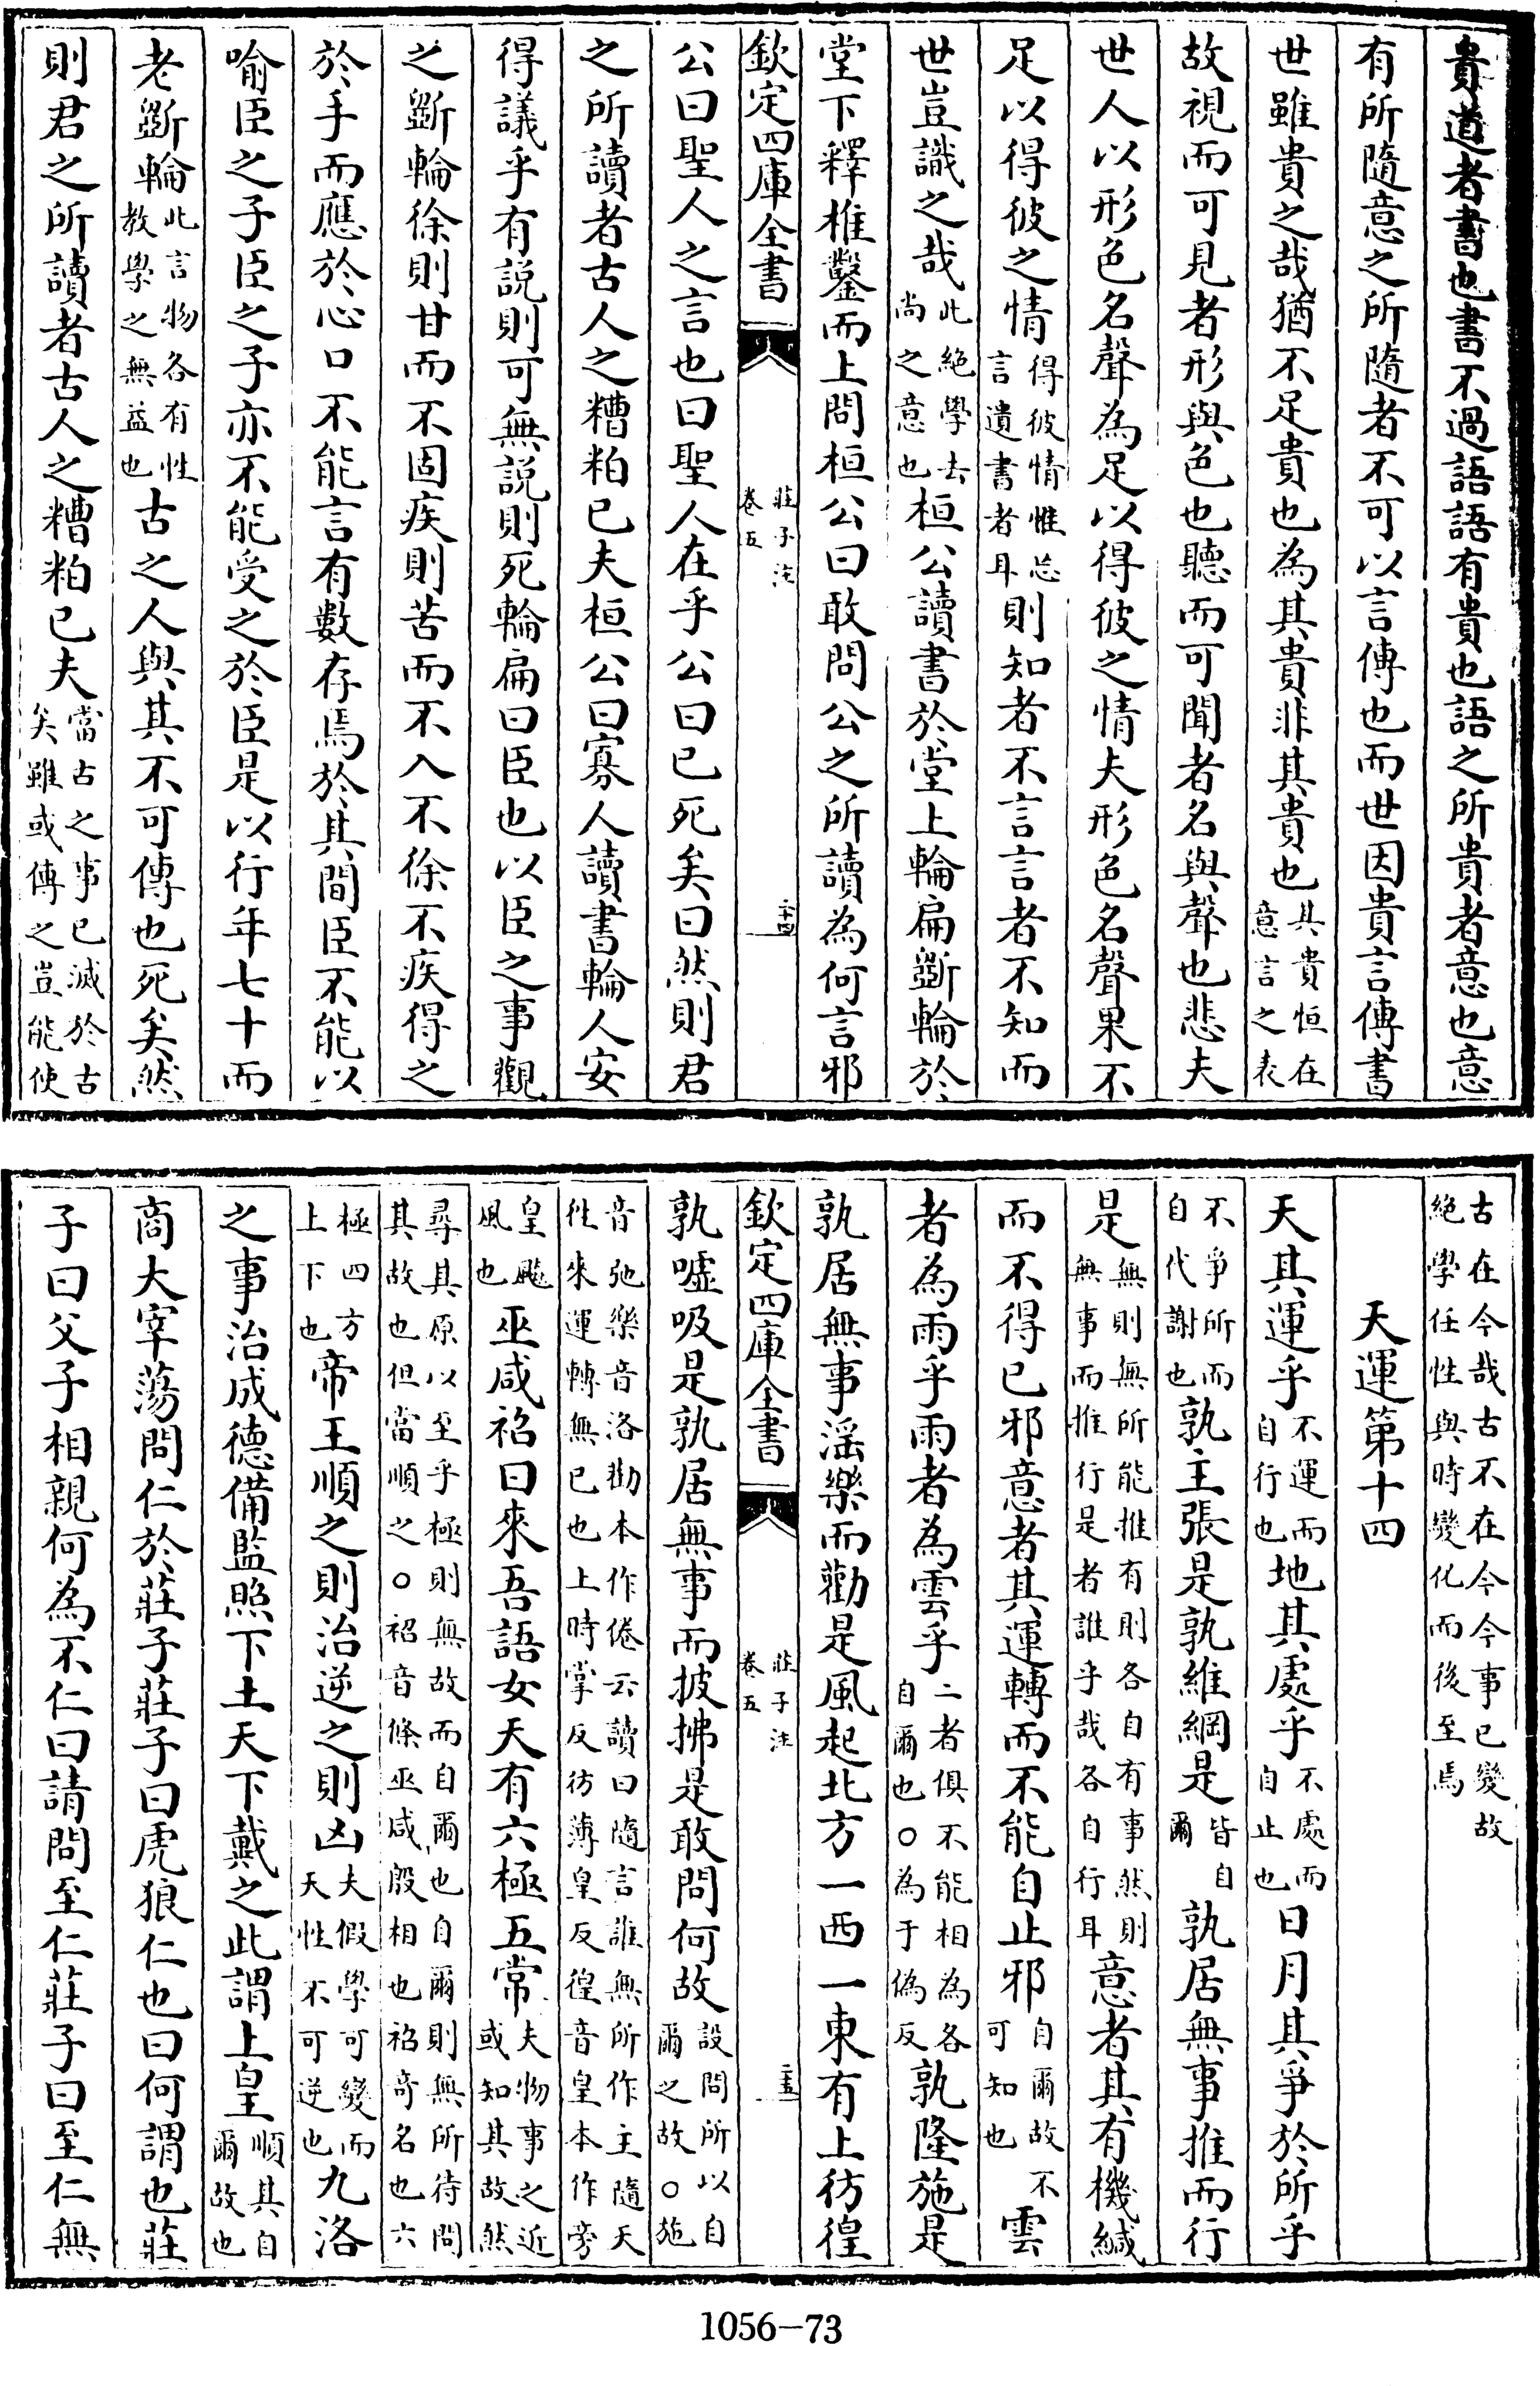 貴道者書也書不過語語有貴也語之所貴者意也意
有所隨意之所隨者不可以言傳也而世因貴言傳書
世雖貴之哉猶不足貴也為其貴非其貴也其貴恒在意言之表
故視而可見者形與色也聽而可聞者名與聲也悲夫
世人以形色名聲為足以得彼之情夫形色名聲果不
足以得彼之情得彼情惟忘言遺書者耳則知者不言言者不知而
世豈識之哉此絶學去尚之意也桓公讀書於堂上輪扁斲輪於
堂下釋椎鑿而上問桓公曰敢問公之所讀為何言邪
欽定四庫全書 莊子注 卷五 二十四
公曰聖人之言也曰聖人在乎公曰已死矣曰然則君
之所讀者古人之糟粕已夫桓公曰寡人讀書輪人安
得議乎有説則可無説則死輪扁曰臣也以臣之事觀
之斲輪徐則甘而不固疾則苦而不入不徐不疾得之
於手而應於心口不能言有數存焉於其間臣不能以
喻臣之子臣之子亦不能受之於臣是以行年七十而
老斲輪此言物各有性教學之無益也古之人與其不可傳也死矣然
則君之所讀者古人之糟粕已夫當古之事已滅於古矣雖或傳之豈能使
古在今哉古不在今今事已變故絶學任性與時變化而後至焉
天運第十四
天其運乎不運而自行也地其處乎不處而自止也日月其爭於所乎
不爭所而自代謝也孰主張是孰維綱是皆自爾孰居無事推而行
是無則無所能推有則各自有事然則無事而推行是者誰乎哉各自行耳意者其有機緘
而不得已邪意者其運轉而不能自止邪自爾故不可知也雲
者為雨乎雨者為雲乎二者俱不能相為各自爾也○為于偽反孰隆施是
孰居無事淫樂而勸是風起北方一西一東有上彷徨
欽定四庫全書 莊子注 卷五 二十五
孰噓吸是孰居無事而披拂是敢問何故設問所以自爾之故○施
音弛樂音洛勸本作倦云讀曰隨言誰無所作主隨天徃來運轉無已也上時掌反彷薄皇反徨音皇本作旁
皇颷風也巫咸祒曰來吾語女天有六極五常夫物事之近或知其故然
尋其原以至乎極則無故而自爾也自爾則無所待問其故也但當順之○祒音條巫咸殷相也祒竒名也六
極四方上下也帝王順之則治逆之則凶夫假學可變而天性不可逆也九洛
之事治成德備監照下土天下戴之此謂上皇順其自爾故也
商大宰蕩問仁於莊子莊子曰虎狼仁也曰何謂也莊
子曰父子相親何為不仁曰請問至仁莊子曰至仁無
1056-73